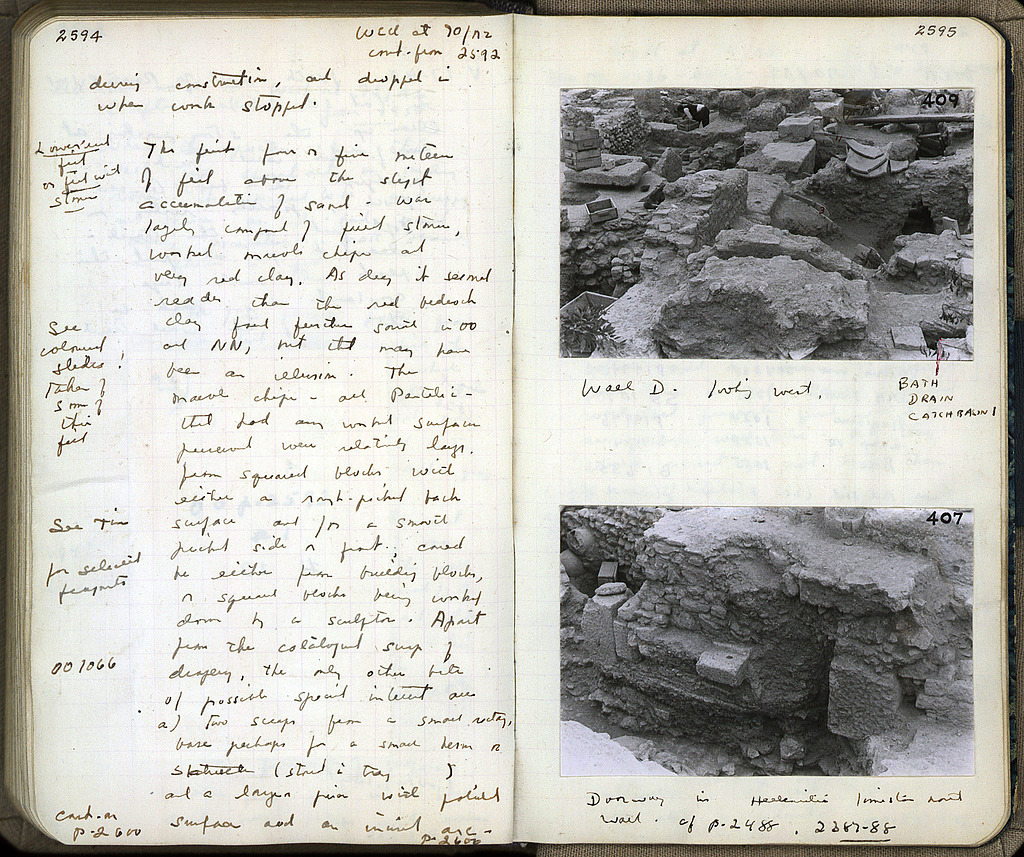 2594
Well at 70/ΠΖ
cont. from 2592
during construction, and dropped in
when work stopped.
Lowermost
fill
or fill with
stone
The first four or five meters
of fill above the slight
accumulation of sand - was
largely composed of field stones,
worked marble chips and
very red clay. As dug it seemed
redder than the red bedrock
clay found further south in OO
and NN, but this may have
been an illusion. The
marble chips - all Pentelic -
that had any worked surface
preserved were relatively large,
from squared blocks with
either a rough-picked back
surface and/or a smooth
picked side or front; could
be either from building blocks,
or squared blocks being worked
down by a sculptor. Apart
from the catalogued scrap of
drapery, the only other bits
of possible special interest are
a) two scraps from a small rectang.
base perhaps for a small herm or
statuette (stored in tray )
and a larger piece with polished
surface and an incised arc -
p. 2600
See
coloured
slides
taken of
some of
this
fill
See tin
for selected
fragments
OO 1066
cont. on
p. 2600
2595
409
Wall D. looking west.
BATH
DRAIN
CATCHBASIN!
407
Doorway in Hellenistic limestone
wall. cf p. 2488, 2287-88